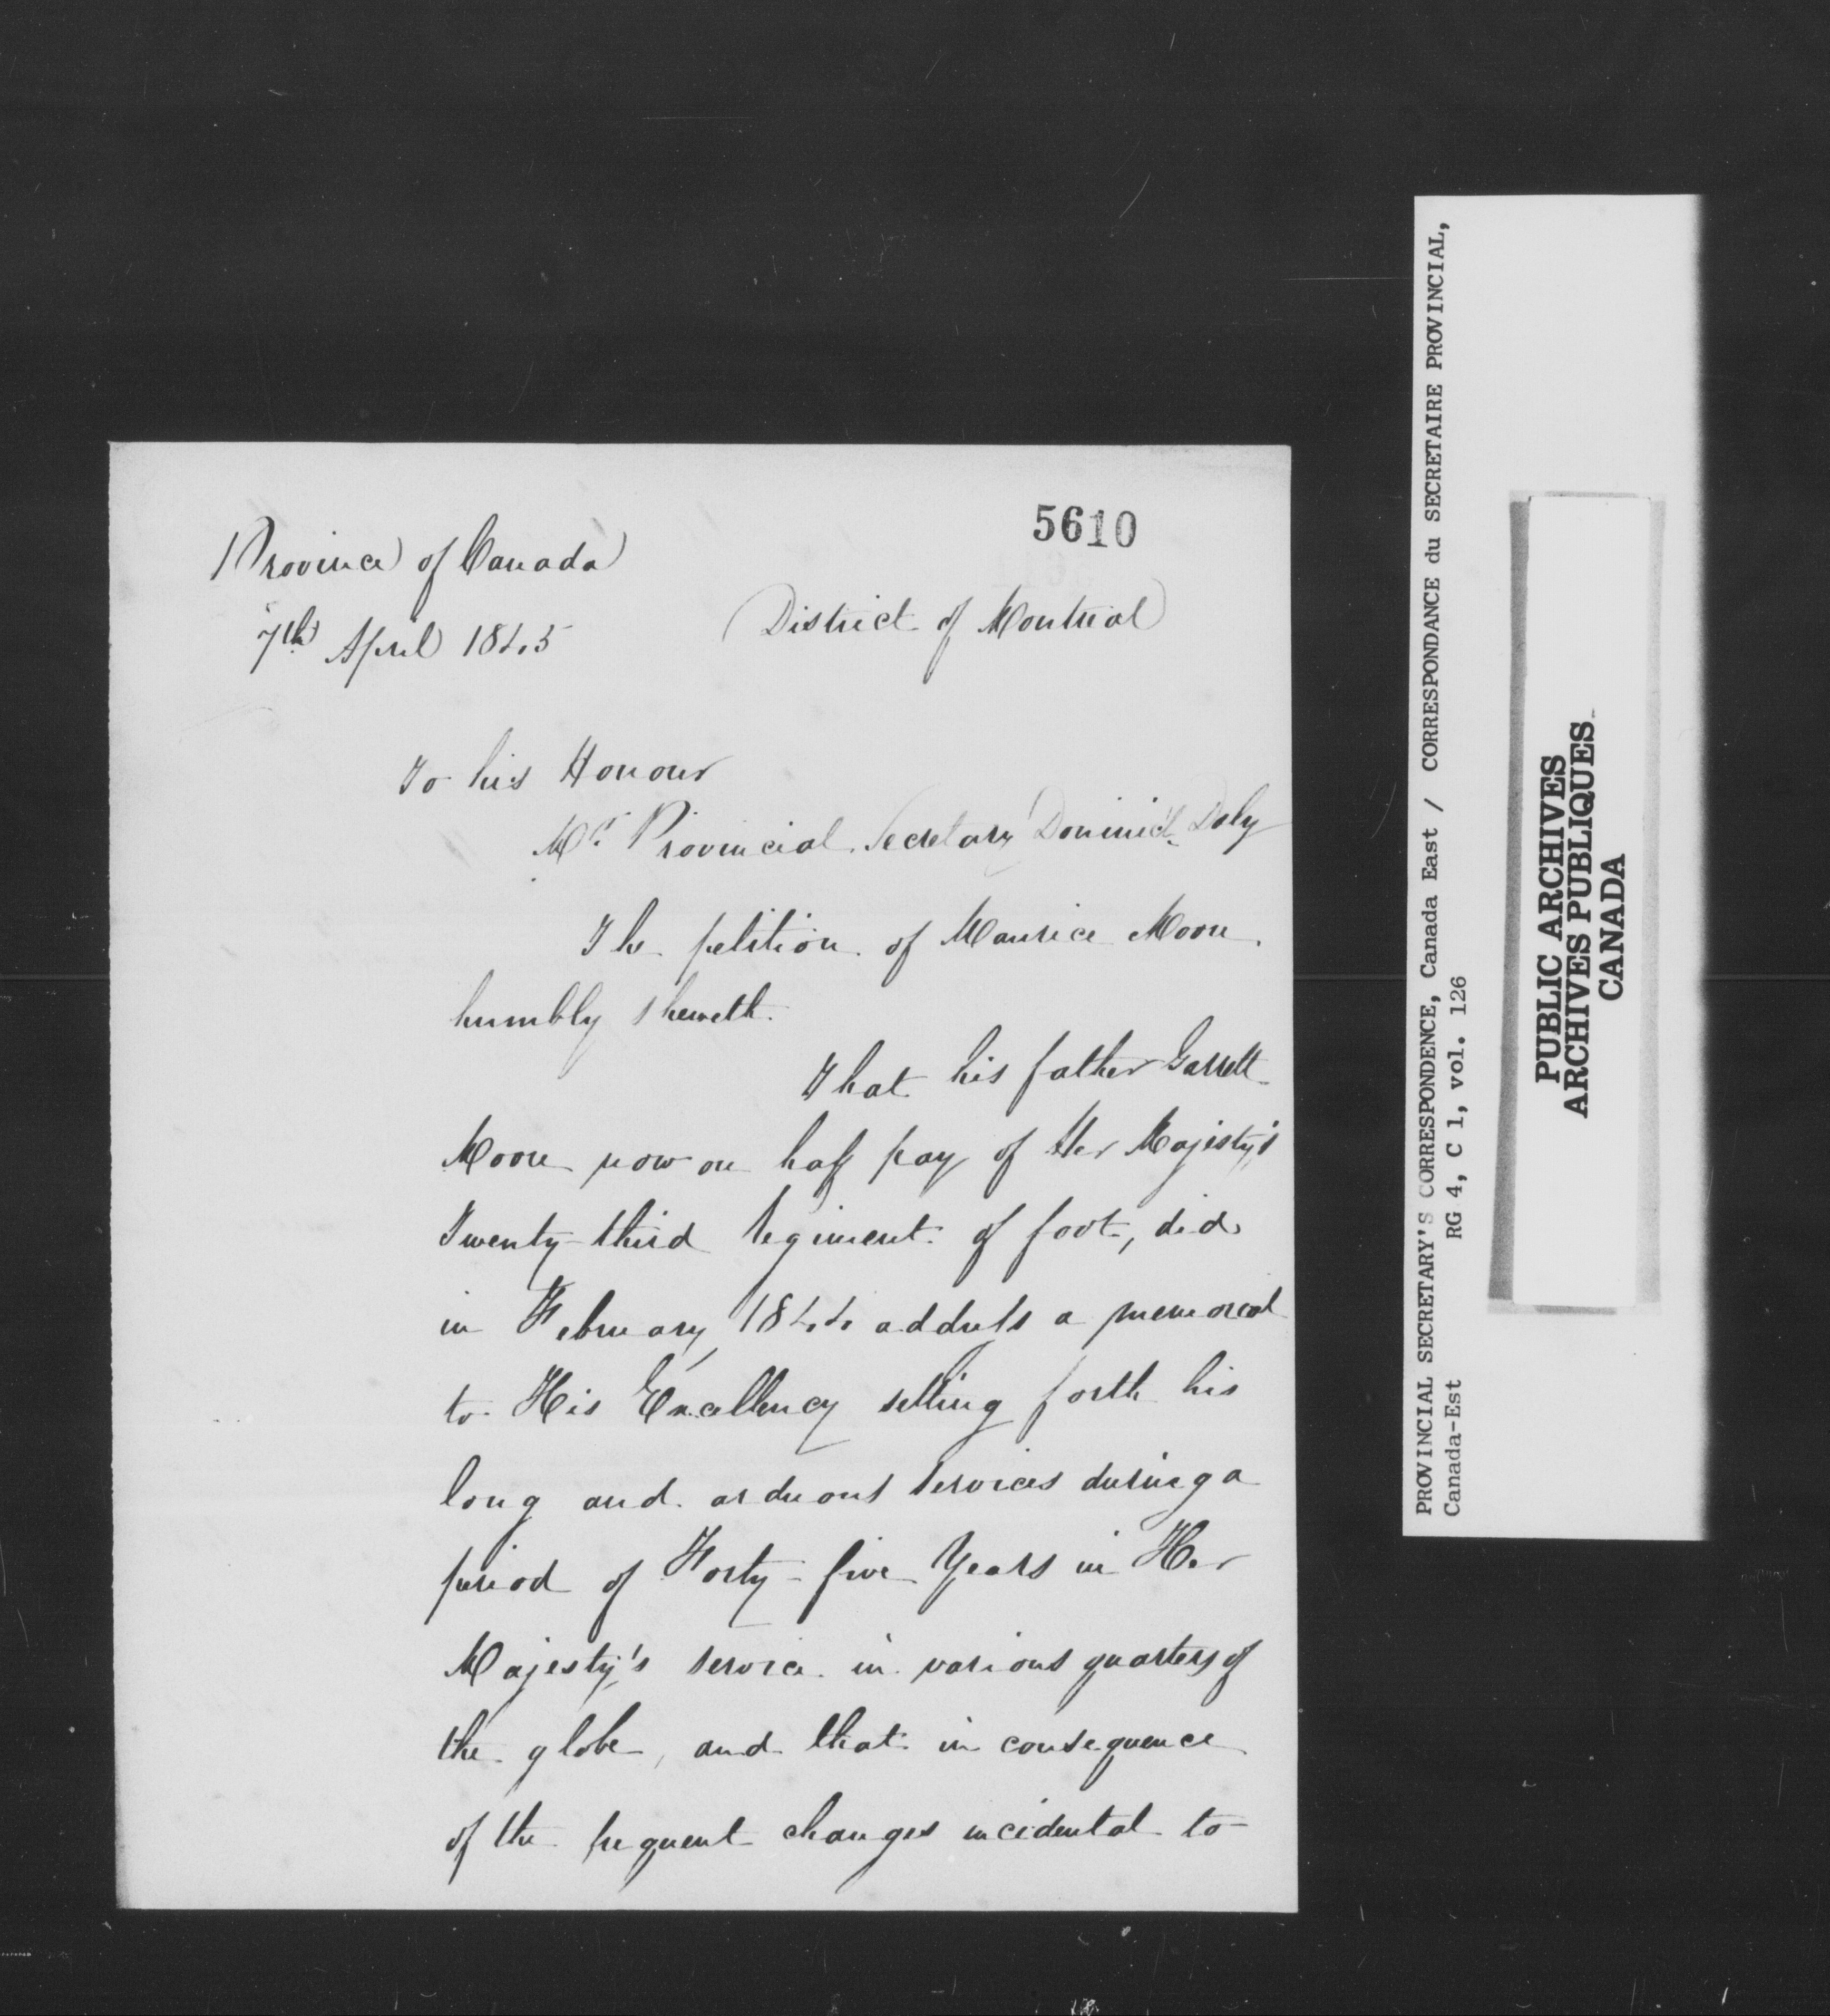 5610
Province of Canada
7th April 1845
District of Montreal
To his Honour
Mr. Provincial Secretary Dominick Daly
The petition of Maurice Moore
humbly sheweth.
That his father Garrett
Moore now on half pay of Her Majesty's
Twenty-third Regiment of foot, did
in February 1844 address a memorial
to His Excellency setting forth his
long and arduous services during a
period of Forty-five Years in Her
Majesty's service in various quarters of
the globe, and that in consequence
of the frequent changes incidental to
PROVINCIAL SECRETARY'S CORRESPONDENCE, Canada East / CORRESPONDANCE du SECRETAIRE PROVINCIAL,
Canada-Est RG 4, C 1, vol. 126
PUBLIC ARCHIVES
ARCHIVES PUBLIQUES
CANADA